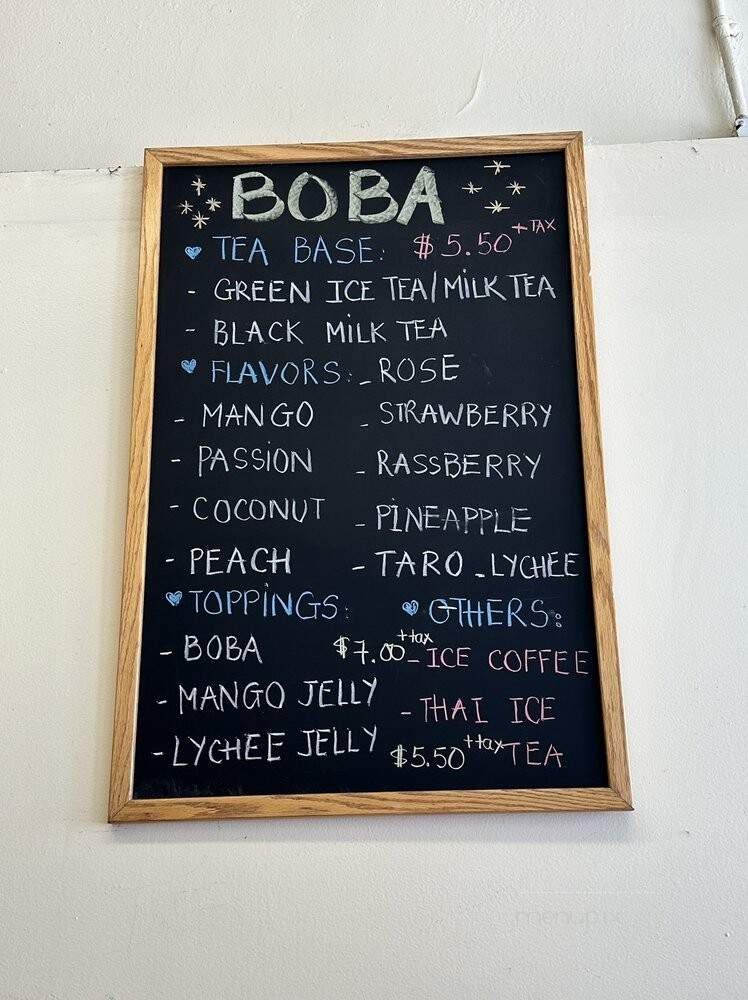 BOBA
TEA BASE: $5.50 +TAX
- GREEN ICE TEA/MILK TEA
- BLACK MILK TEA
FLAVORS: - ROSE
- MANGO - STRAWBERRY
- PASSION - RASSBERRY
- COCONUT - PINEAPPLE
- PEACH - TARO - LYCHEE
TOPPINGS: OTHERS:
- BOBA $7.00 +tax - ICE COFFEE
- MANGO JELLY - THAI ICE
- LYCHEE JELLY $5.50 +tax TEA
menupix